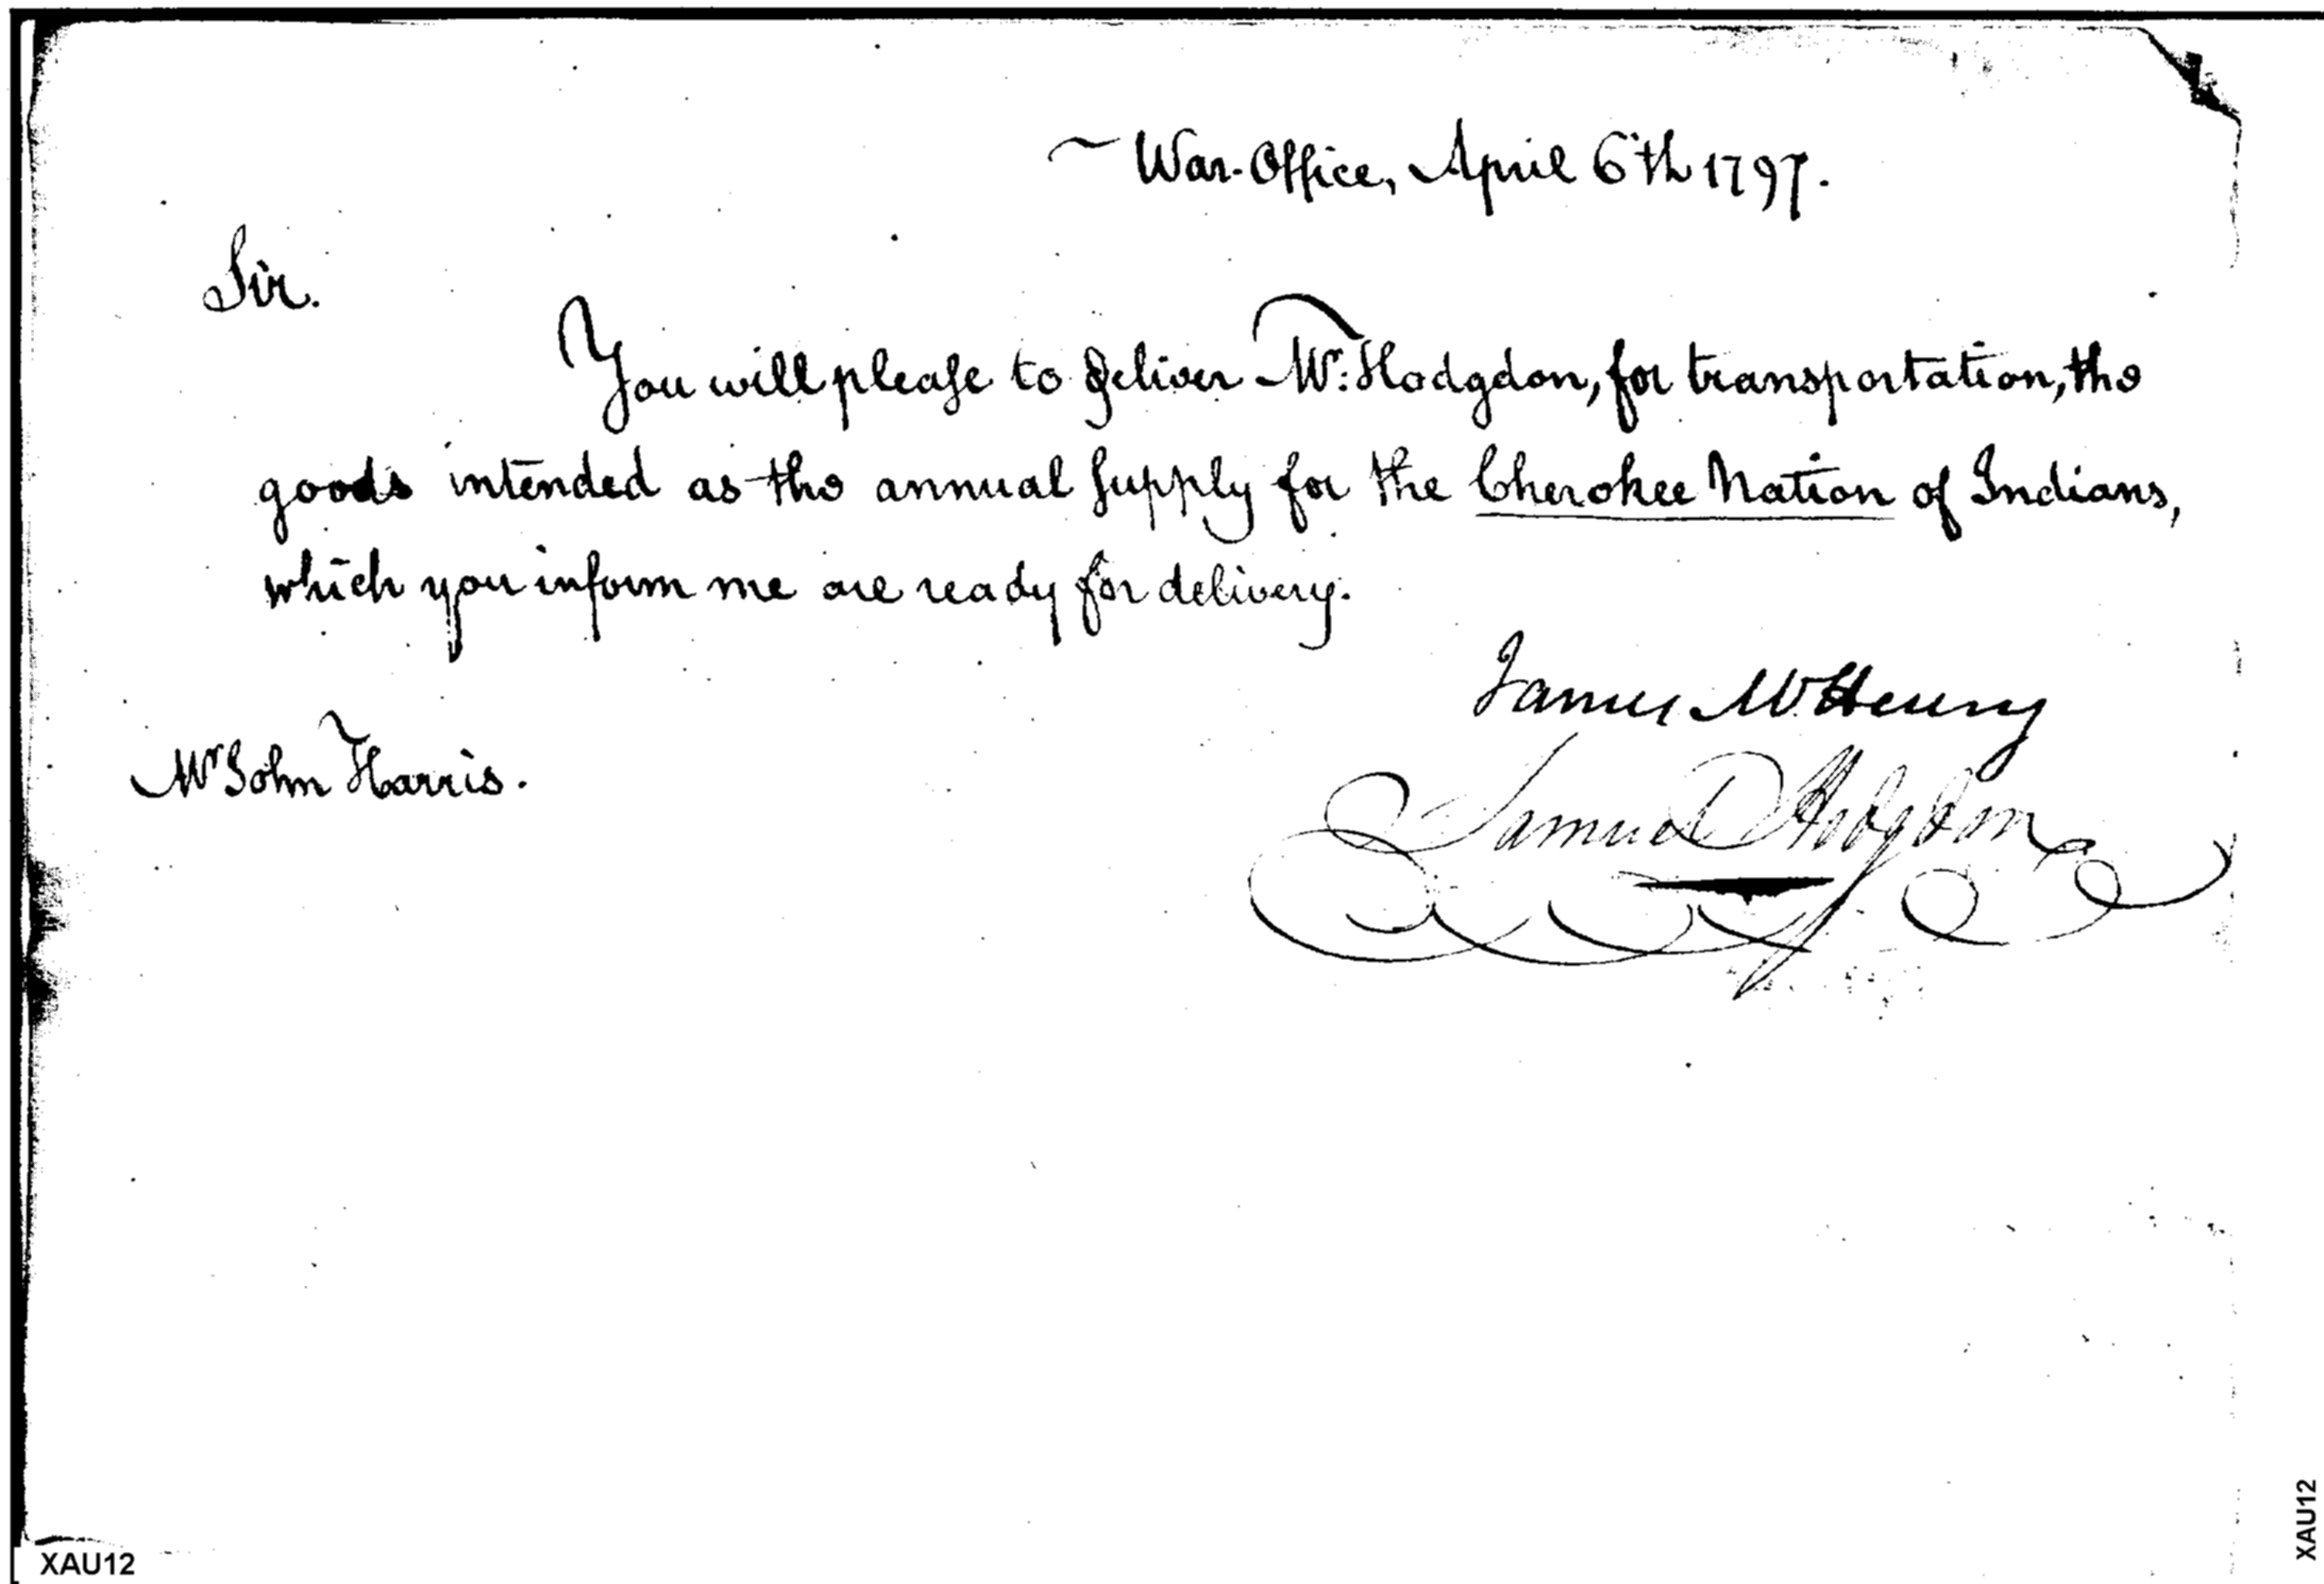 War-Office, April 6th 1797.
Sir.
You will please to deliver Mr. Hodgdon, for transportation, the
goods intended as the annual Supply for the Cherokee Nation of Indians,
which you inform me are ready for delivery.
James McHenry
Mr John Harris.
Samuel Hodgdon
XAU12
XAU12